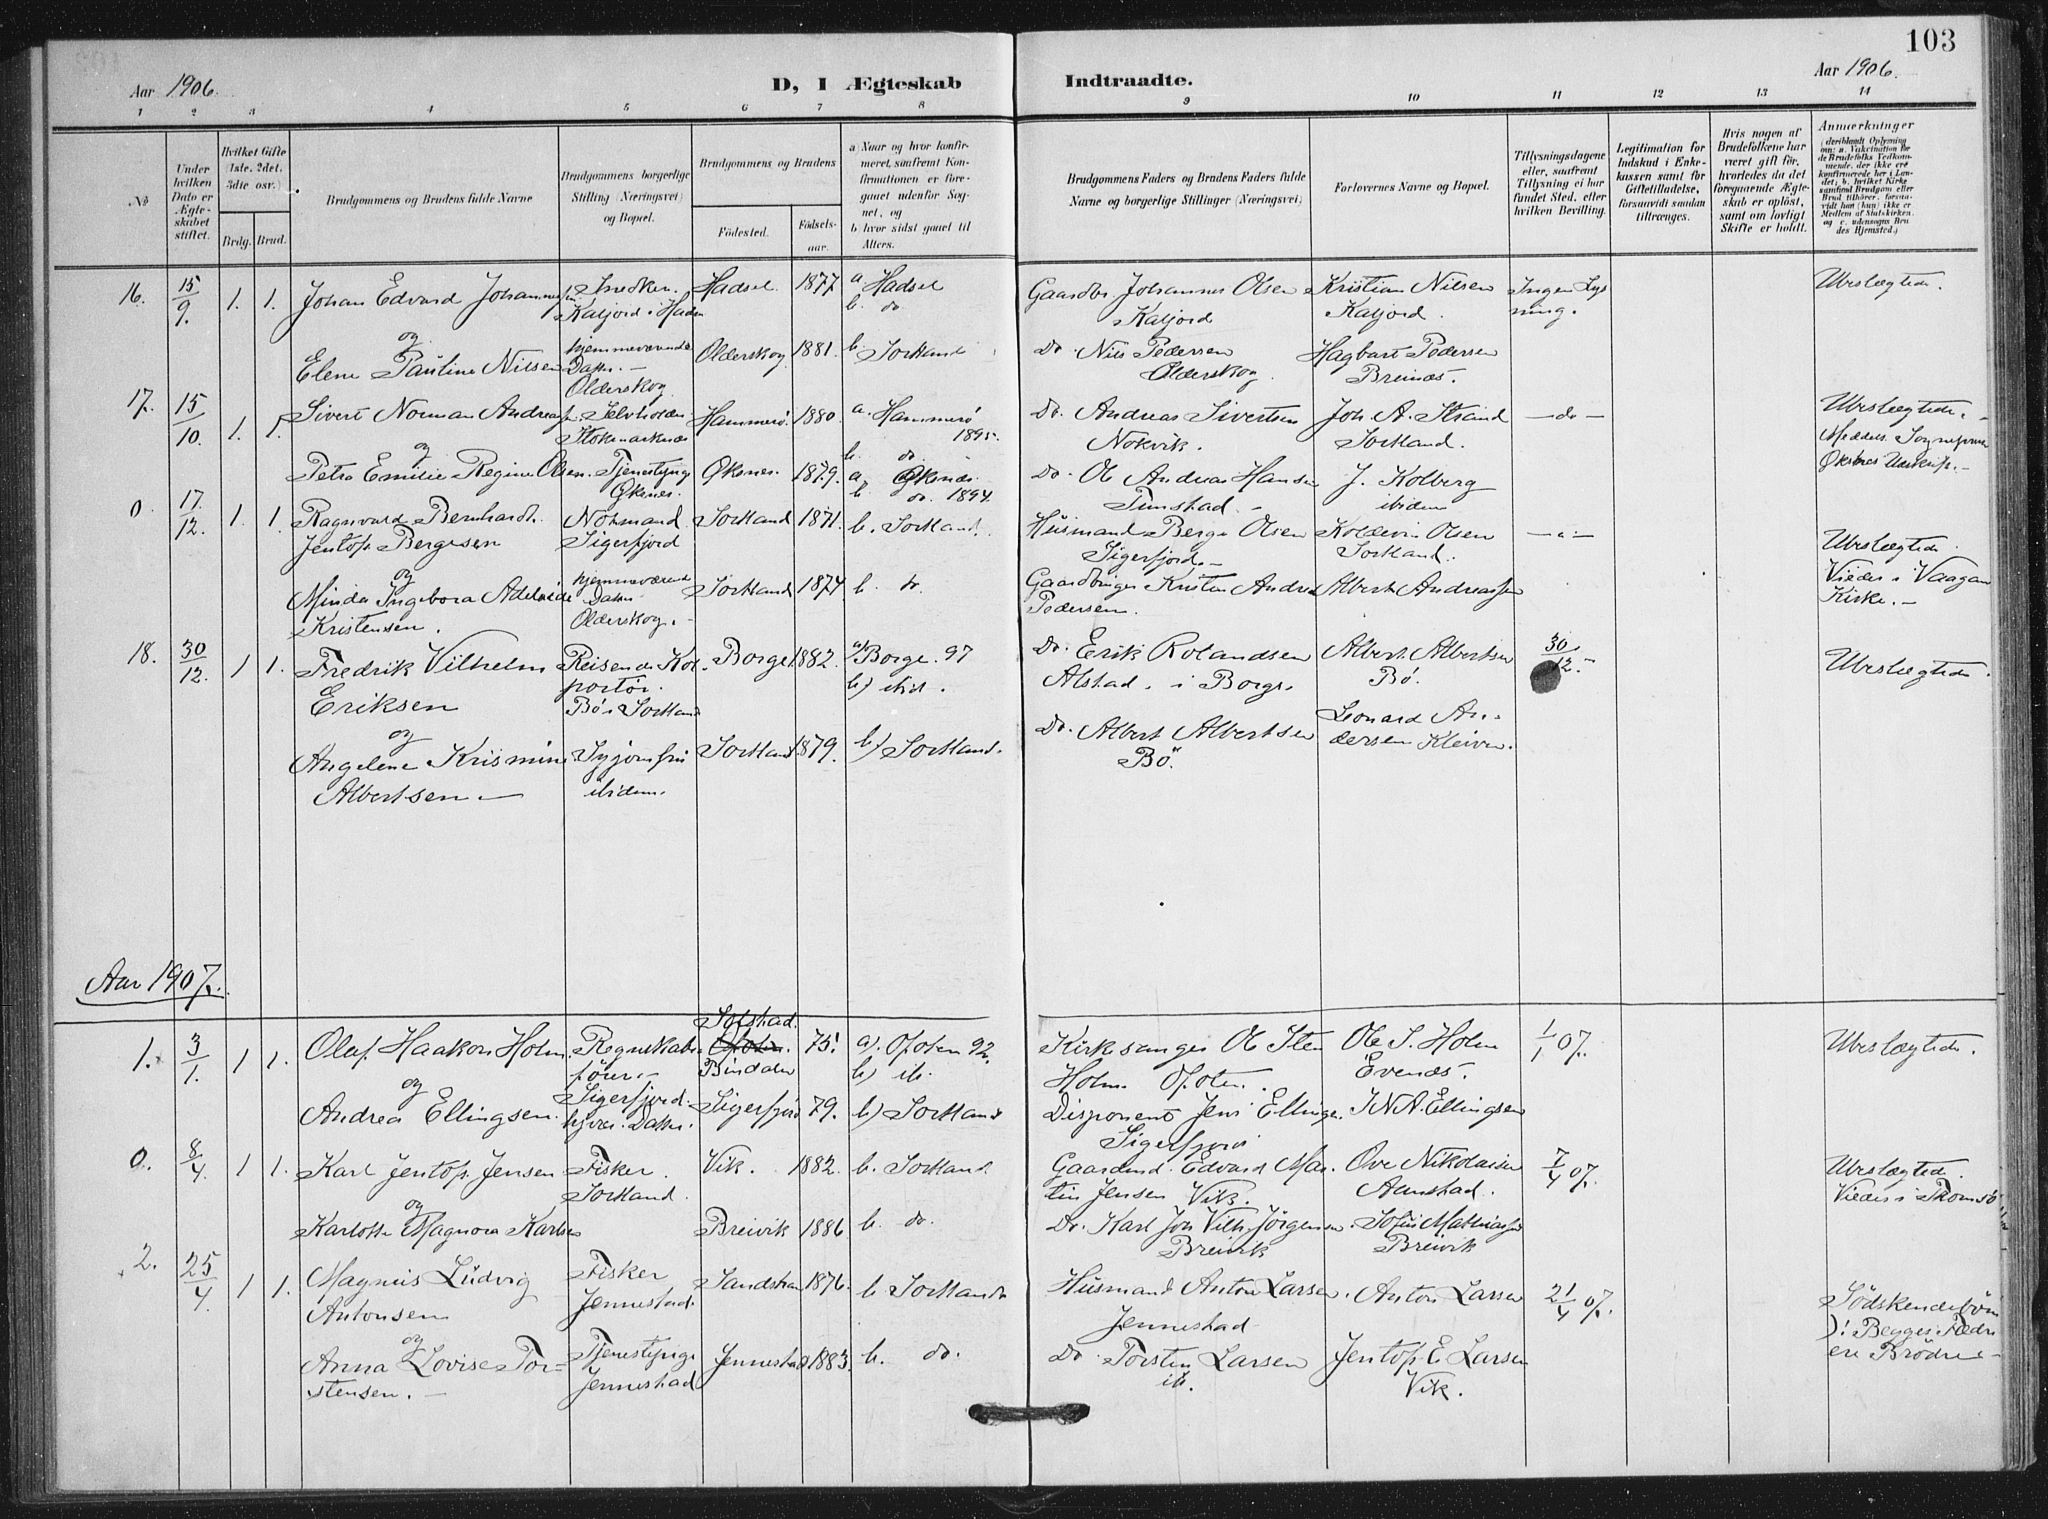 103
Aar 1906.
D, I Ægteskab
Indtraadte.
Aar 1906.
1 2 3 4 5 6 7 8 9 10 11 12 13 14
No
Under hvilken Dato er Ægteskabet stiftet.
Hvilket Gifte (1ste, 2det, 3die osv.)
Brdg. Brud.
Brudgommens og Brudens fulde Navne
Brudgommens borgerlige Stilling (Næringsvei) og Bopæl.
Brudgommens og Brudens
Fødested. Fødselsaar.
a) Naar og hvor konfirmeret, saafremt Konfirmationen er foregaaet udenfor Sognet, og
b hvor sidst gaaet til Alters.
Brudgommens Faders og Brudens Faders fulde Navne og borgerlige Stillinger (Næringsvei)
Forlovernes Navne og Bopæl.
Tillysningsdagene eller, saafremt Tillysning ei har fundet Sted, efter hvilken Bevilling.
Legitimation for Indskud i Enkekassen samt for Giftetilladelse, forsaavidt saadan tiltrænges.
Hvis nogen af Brudefolkene har været gift før, hvorledes da det foregaaende Ægteskab er opløst, samt om lovligt Skifte er holdt.
Anmærkninger
(deriblandt Oplysning om: a. Vakcination for de Brudefolks Vedkommende, der ikke ere konfirmerede her i Landet; b. hvilket Kirkesamfund Brudgom eller Brud tilhører, forsavidt han (hun) ikke er Medlem af Statskirken, og c. udensogns Brudes Hjemsted.)
16. 15/9. 1. 1. Johan Edvard Johannessen Kaljord i Hadsel Hadsel. 1877 a Hadsel b. do. Gaardbr Johannes Olsen Kaljord Kristian Nilsen Kaljord. Ingen Lysning. Ubeslægtede.
og
Elene Pauline Nilsen hjemmeværende Datter. Olderskog Olderskog 1881. b. Sortland Do. Nils Pedersen Olderskog. Hagbart Pedersen Breinæs.
17. 15/10. 1. 1. Sivert Norman Andreassen Selvholden Stokmarknæs Hammerø. 1880. a. Hammerø 1895. b. do. Do. Andreas Sivertsen Nokvik. Joh. A. Strand Sortland. —do— Ubeslægtede.
og
Petra Emilie Regine Olsen. Tjenestepige Øksnes. Øksnes. 1879. a, Øksnæs. b. do. 1894. Do. Ole Andreas Hansen Tunstad. J. Kolberg ibidem
0. 17/12. 1 1. Ragnvard Bernhardt Jentof Bergesen Nordmand Sigerfjord Sortland 1871. b. Sortland. Husmand Berge Olsen Sigerfjord. Koldevin Olsen Sortland. —"— Ubeslægtede. Viedes i Vaagan Kirke.
og
Minda Ingebora Adelaide Kristensen. hjemmeværende Datter Olderskog. Sortland 1874 b. do. Gaardbruger Kristen Andreas Pedersen. Albert Andreassen
18. 30/12. 1 1. Fredrik Vilhelm Eriksen Reisende Kolportør. Bø i Sortland Borge 1882. a) Borge. 97 b) ibid. Do. Erik Rolandsen Alstad. i Borge. Albert Albertsen Bø. 30/12. Ubeslægtede.
og
Angelene Krismine Albertsen. Syjomfru ibidem. Sortland 1879. b) Sortland. Do. Albert Albertsen Bø. Leonard Andersen Kleiven.
Aar 1907.
1. 3/1. 1 1. Olaf Haakon Holm. Regnskabsfører. Sigerfjord. Solstad. Ofoten. Bindalen 75. a). Ofoten 92. b) ib. Kirkesanger Ole Sten Holm Ofoten. Ole S. Holm Evenæs. 1/1 07. Ubeslægtede.
og
Andrea Ellingsen. hjvær. Datter. Sigerfjord 79. b) Sortland Disponent Jens Ellingsen Sigerfjord J N A. Ellingsen
0. 8/4. 1 1. Karl Jentof Jensen Fisker Sortland. Vik. 1882. b. Sortland. Gaardmd. Edvard Martin Jensen Vik. Ove Nikolaisen Aanstad. 7/4 07. Ubeslægtede. Viedes i Tromsø
og
Karlotte Magnora Karlsen Breivik 1886 b. do. Do. Karl Joh Vilh. Jørgensen. Breivik Sofus Mathiassen Breivik
2. 25/4. 1 1. Magnus Ludvig Antonsen Fisker Jennestad. Sandstran 1876. b. Sortland Husmand Anton Larsen. Jennestad Anton Larsen 21/4 07. Sødskendebørn ): Begges Fædre ere Brødre
og
Anna Lovise Torstensen. Tjenestepige Jennestad Jennestad 1883. b. do. Do. Torsten Larsen ib. Jentof E Larsen Vik.